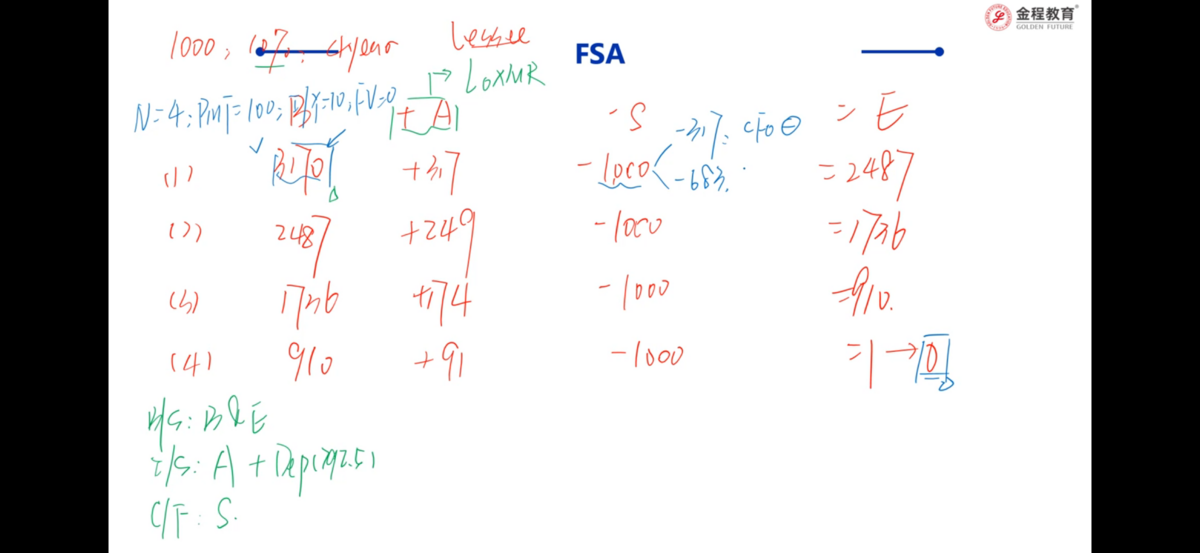 金程教育
GOLDEN FUTURE
FSA
1000, 10%, 4year lessee
L0XMR
N=4; PMT=100; I/Y=10, FV=0
B + A - S = E
(1) 3170 +317 -1000 =2487
-317: CFO ⊖
-683.
(2) 2487 +249 -1000 =1736
(3) 1736 +174 -1000 =910.
(4) 910 +91 -1000 =1 → 0
B/S: B & E
I/S: A + Dep(792.5)
C/F: S.